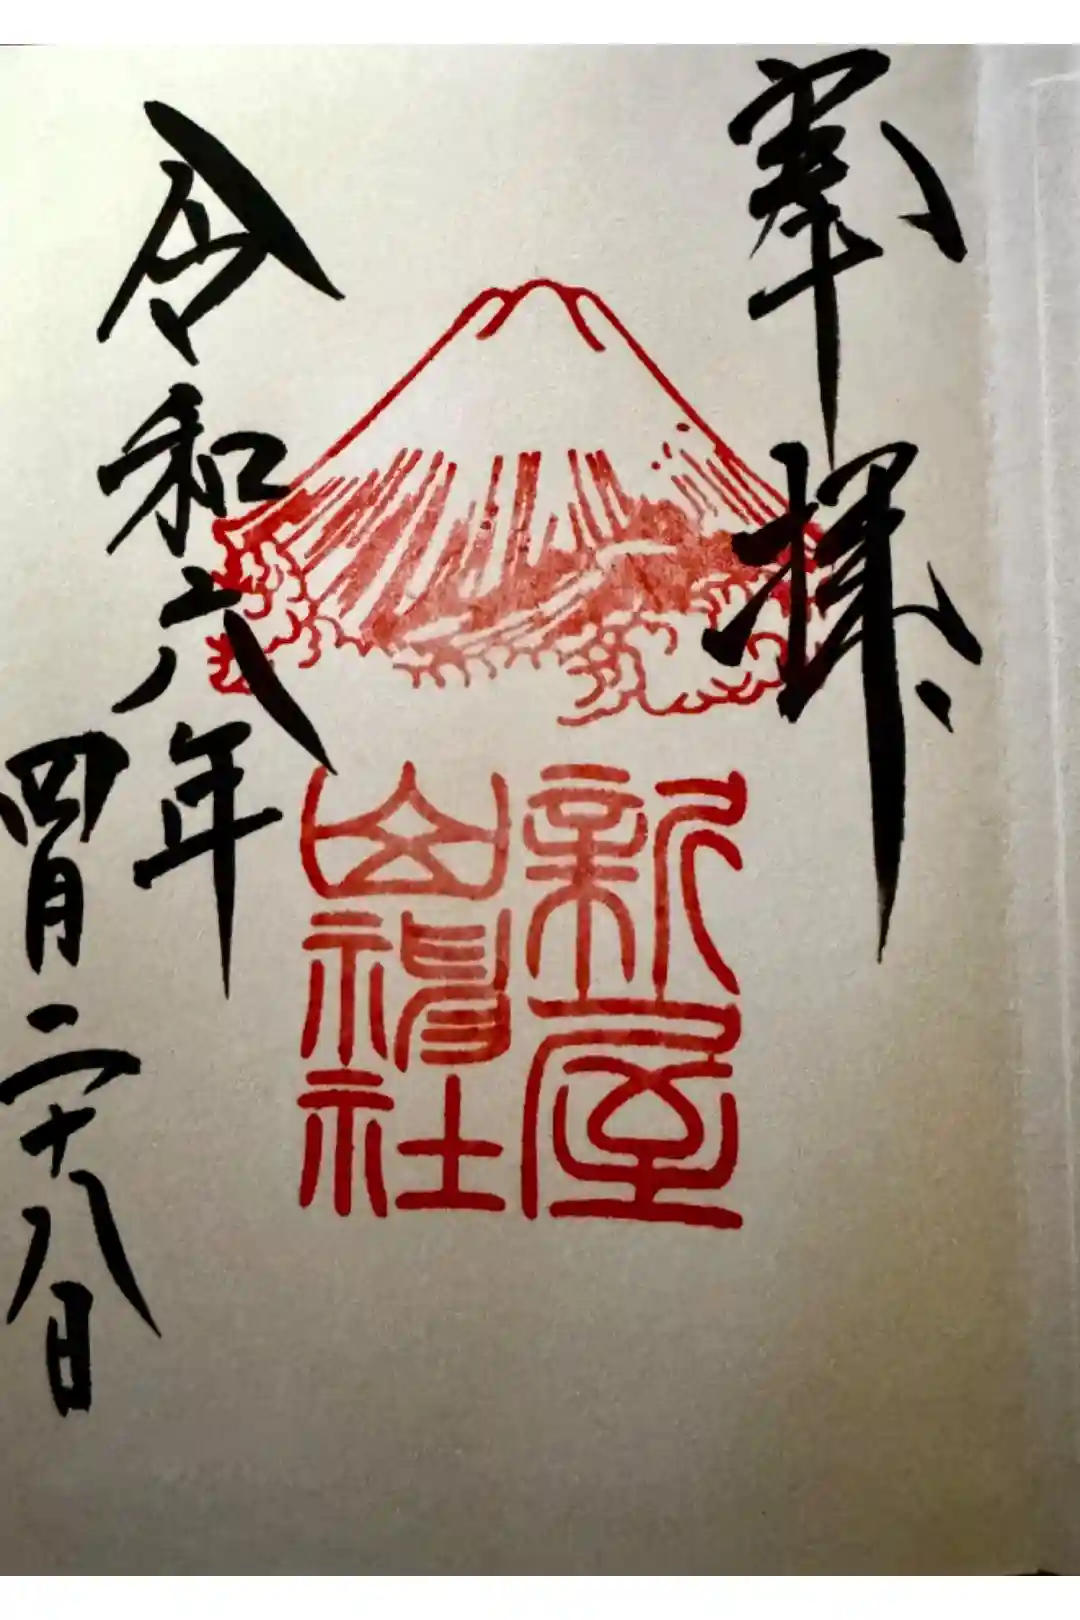 奉拝
新屋
山神社
令和六年
四月二十八日